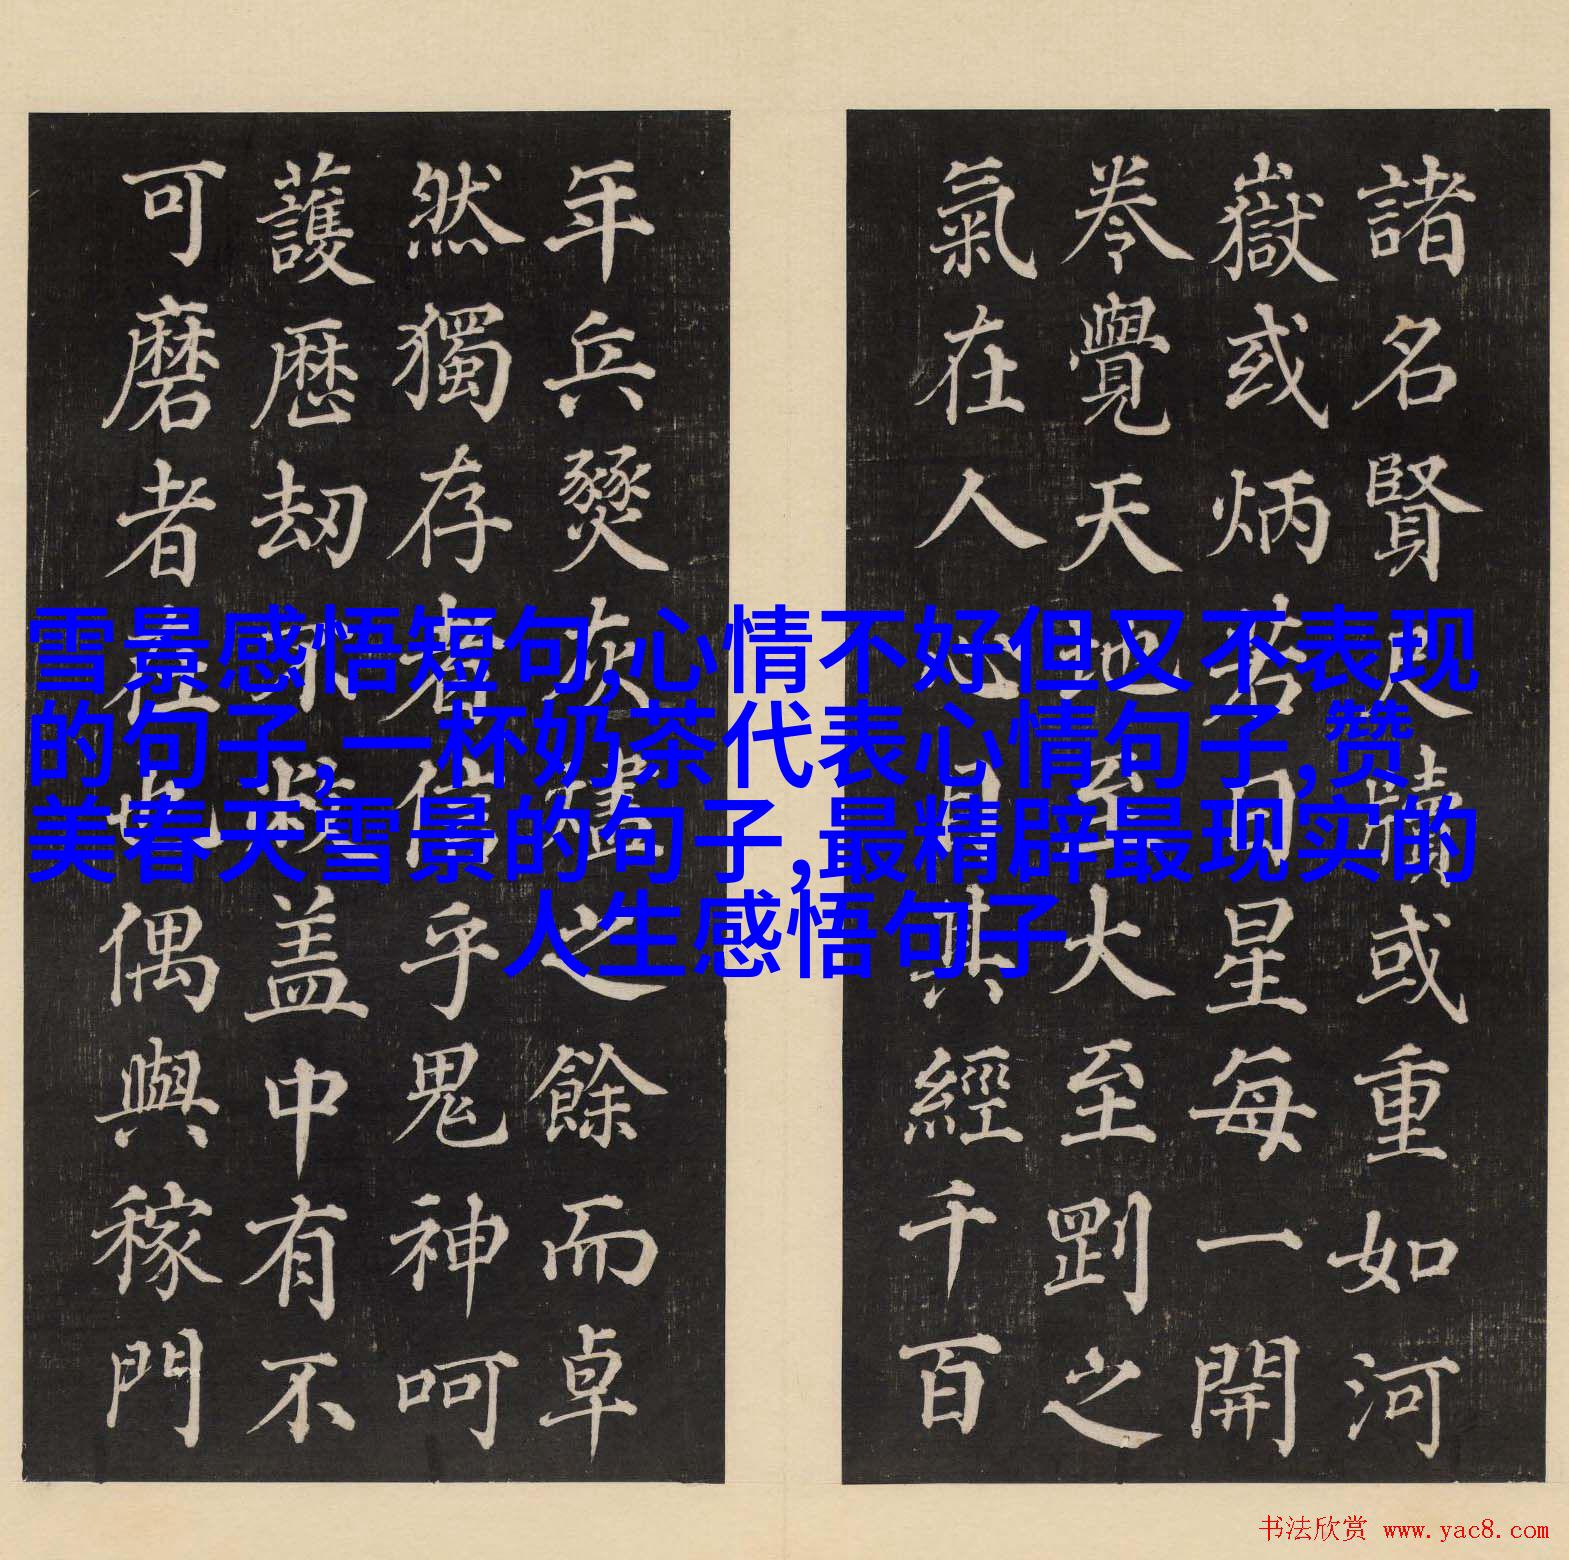 諸名賢尺牘或重如河
嶽或炳若日星每一開
卷覺天地至大至剛之
氣在人心目其經千百
年兵燹灰燼之餘而卓
然獨存者信乎鬼神呵
護歷劫蓋中有不
可磨者在也偶與稼門
雪景感悟短句,心情不好但又不表现
的句子,一杯奶茶代表心情句子,赞
美春天雪景的句子,最精辟最现实的
人生感悟句子
书法欣赏 www.yac8.com